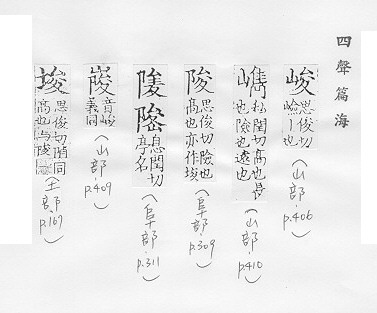 四聲篇海
峻 思俊切
嶮丨也
(山部.p.406)
嶲 私閏切高也長
也險也遠也
(山部.p.410)
陖 思俊切險也
高也亦作埈
(阜部.p.309)
息閏切
亭名
(阜部.p.311)
音峻
義同
(山部.p.409)
埈 思俊切閏同
高也与陖
(土部.p.167)